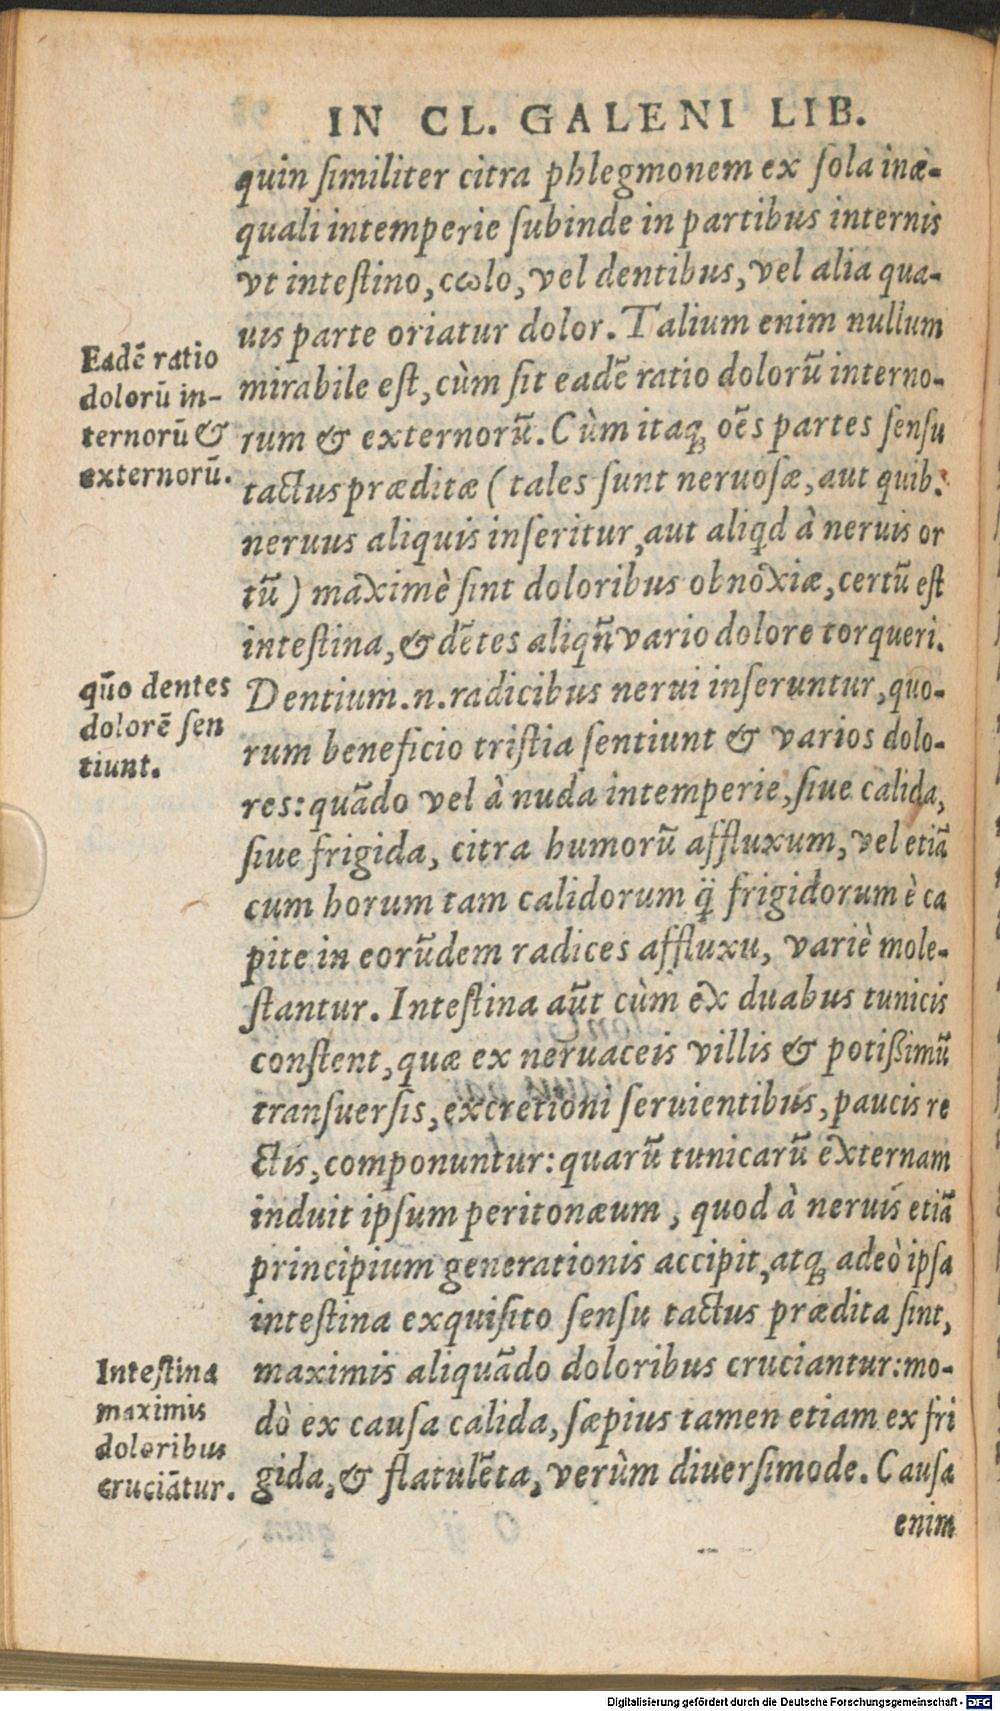 IN CL. GALENI LIB.
quin similiter citra phlegmonem ex sola inæ-
quali intemperie subinde in partibus internis
vt intestino, cωlo, vel dentibus, vel alia qua-
uis parte oriatur dolor. Talium enim nullum
mirabile est, cùm sit eadē ratio dolorū interno-
rum & externorū. Cùm itaq; oēs partes sensu
tactus præditæ (tales sunt neruosæ, aut quib.
neruus aliquis inseritur, aut aliqd à neruis or
tū) maximè sint doloribus obnoxiæ, certū est
intestina, & dētes aliqn̄ vario dolore torqueri.
Dentium .n. radicibus nerui inseruntur, quo-
rum beneficio tristia sentiunt & varios dolo-
res: quādo vel à nuda intemperie, siue calida,
siue frigida, citra humorū affluxum, vel etiā
cum horum tam calidorum q̈ frigidorum è ca
pite in eorūdem radices affluxu, variè mole-
stantur. Intestina aūt cùm ex duabus tunicis
constent, quæ ex neruaceis villis & potißimū
transuersis, excretioni seruientibus, paucis re
ctis, componuntur: quarū tunicarū externam
induit ipsum peritonæum, quod à neruis etiā
principium generationis accipit, atq; adeò ipsa
intestina exquisito sensu tactus prædita sint,
maximis aliquādo doloribus cruciantur: mo-
dò ex causa calida, sæpius tamen etiam ex fri
gida, & flatulēta, verùm diuersimode. Causa
enim
Eadē ratio
dolorū in-
ternorū &
externorū.
qūo dentes
dolorē sen
tiunt.
Intestina
maximis
doloribus
cruciātur.
Digitalisierung gefördert durch die Deutsche Forschungsgemeinschaft - DFG